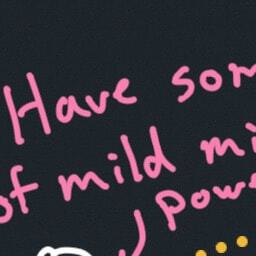 Have som
of mild mi
powe